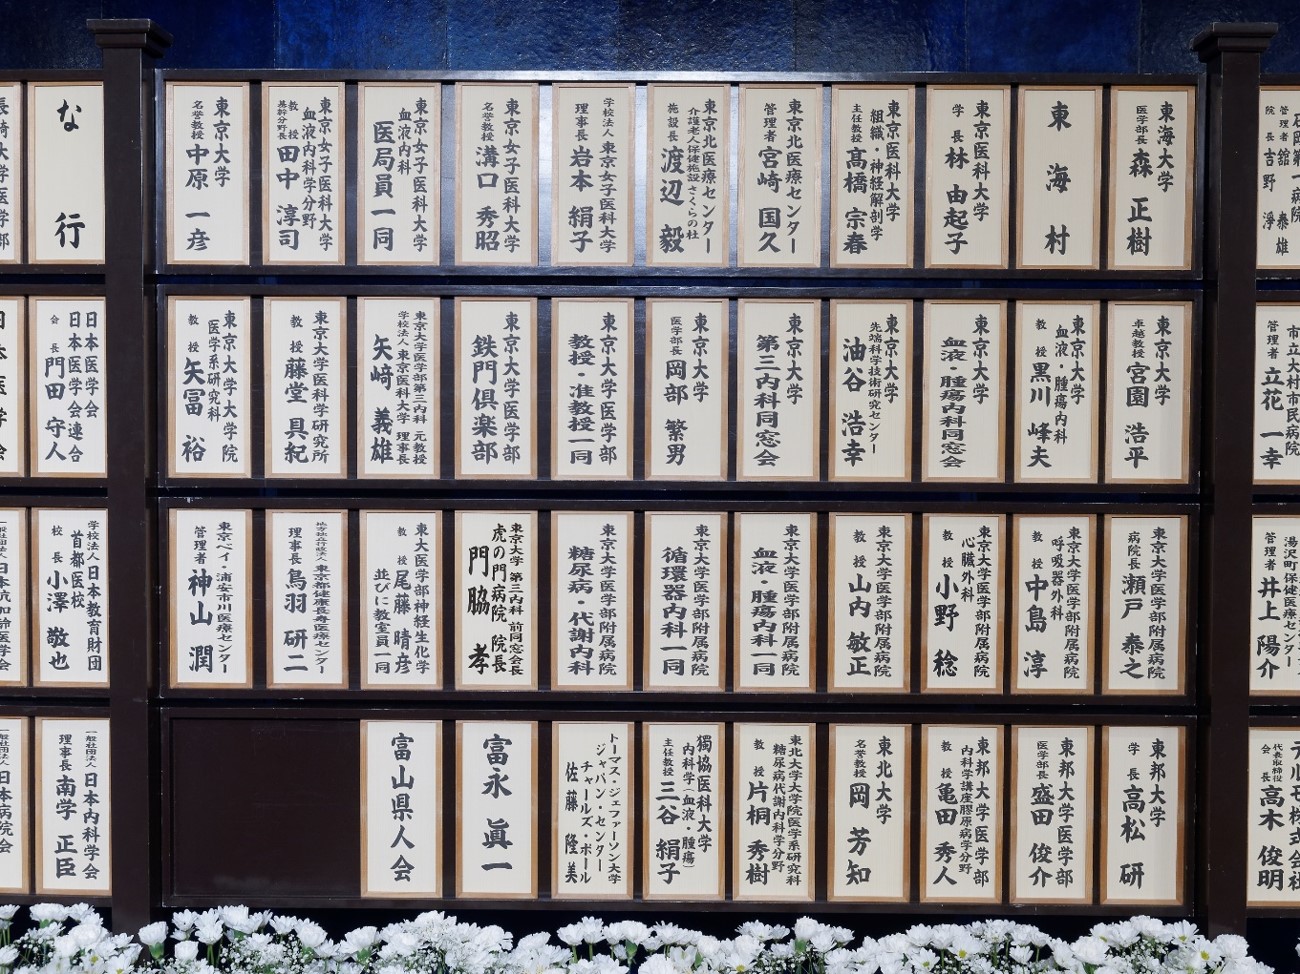 石岡第一病院
管理者 舘 泰雄
院長 吉野 淨
市立大村市民病院
管理者 立花 一幸
湯沢町保健医療センター
管理者 井上 陽介
テルモ株式会社
代表取締役
会長 高木 俊明
東海大学
医学部長 森 正樹
東海村
東京医科大学
学長 林 由起子
東京医科大学
組織・神経解剖学
主任教授 髙橋 宗春
東京北医療センター
管理者 宮崎 国久
東京北医療センター
介護老人保健施設 さくらの杜
施設長 渡辺 毅
学校法人 東京女子医科大学
理事長 岩本 絹子
東京女子医科大学
名誉教授 溝口 秀昭
東京女子医科大学
血液内科
医局員一同
東京女子医科大学
血液内科学分野
教授
基幹分野長 田中 淳司
東京大学
名誉教授 中原 一彦
東京大学
卓越教授 宮園 浩平
東京大学
血液・腫瘍内科
教授 黒川 峰夫
東京大学
血液・腫瘍内科同窓会
東京大学
先端科学技術研究センター
油谷 浩幸
東京大学
第三内科同窓会
東京大学
医学部長 岡部 繁男
東京大学医学部
教授・准教授一同
東京大学医学部
鉄門倶楽部
東京大学医学部第三内科 元教授
学校法人 東京医科大学 理事長
矢﨑 義雄
東京大学医科学研究所
教授 藤堂 具紀
東京大学大学院
医学系研究科
教授 矢冨 裕
東京大学医学部附属病院
病院長 瀬戸 泰之
東京大学医学部附属病院
呼吸器外科
教授 中島 淳
東京大学医学部附属病院
心臓外科
教授 小野 稔
東京大学医学部附属病院
教授 山内 敏正
東京大学医学部附属病院
血液・腫瘍内科一同
東京大学医学部附属病院
循環器内科一同
東京大学医学部附属病院
糖尿病・代謝内科
東京大学 第三内科 前同窓会長
虎の門病院 院長
門脇 孝
東大医学部神経生化学
教授 尾藤 晴彦
並びに教室員一同
地方独立行政法人 東京都健康長寿医療センター
理事長 鳥羽 研二
東京ベイ・浦安市川医療センター
管理者 神山 潤
東邦大学
学長 高松 研
東邦大学医学部
医学部長 盛田 俊介
東邦大学医学部
内科学講座膠原病学分野
教授 亀田 秀人
東北大学
名誉教授 岡 芳知
東北大学大学院医学系研究科
糖尿病代謝内科学分野
教授 片桐 秀樹
獨協医科大学
内科学（血液・腫瘍）
主任教授 三谷 絹子
トーマス・ジェファーソン大学
ジャパン・センター
チャールズ・ポール
佐藤 隆美
富永 眞一
富山県人会
な行
長崎大学医学部
日本医学会
日本医学会連合
会長 門田 守人
日本医学会
学校法人日本教育財団
首都医校
校長 小澤 敬也
一般社団法人 日本抗加齢医学会
一般社団法人 日本内科学会
理事長 南学 正臣
一般社団法人 日本病院会